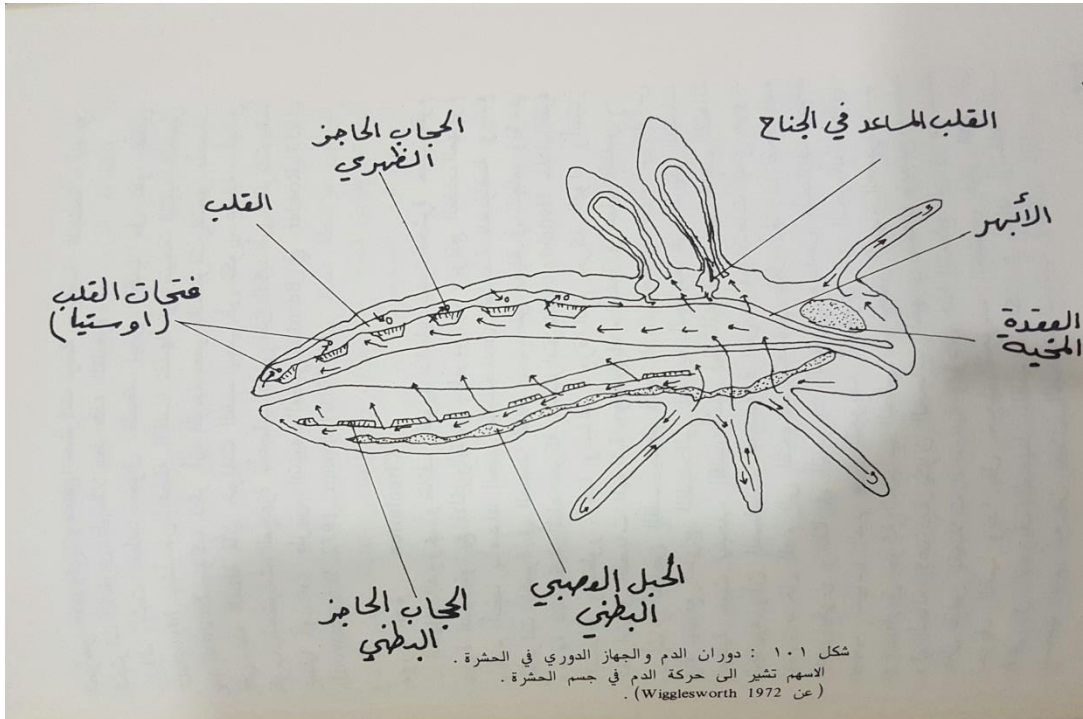 القلب المساعد في الجناح
الحجاب الحاجز
الظهري
القلب
الأبهر
فتحات القلب
(اوستيا)
العقدة
المخية
الحبل العصبي
البطني
الحجاب الحاجز
البطني
شكل ١٠١ : دوران الدم والجهاز الدوري في الحشرة .
الاسهم تشير الى حركة الدم في جسم الحشرة .
(عن Wigglesworth 1972) .